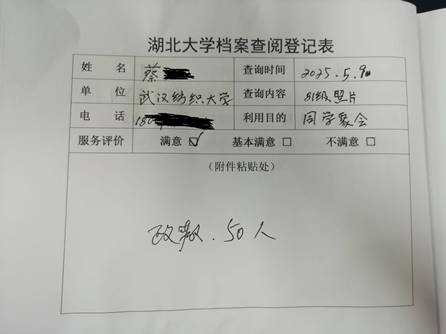 湖北大学档案查阅登记表
姓 名 蔡 查询时间 2025.5.9
单 位 武汉纺织大学 查询内容 81级照片
电 话 180 利用目的 同学聚会
服务评价 满意 ☑ 基本满意 □ 不满意 □
(附件粘贴处)
政教.50人